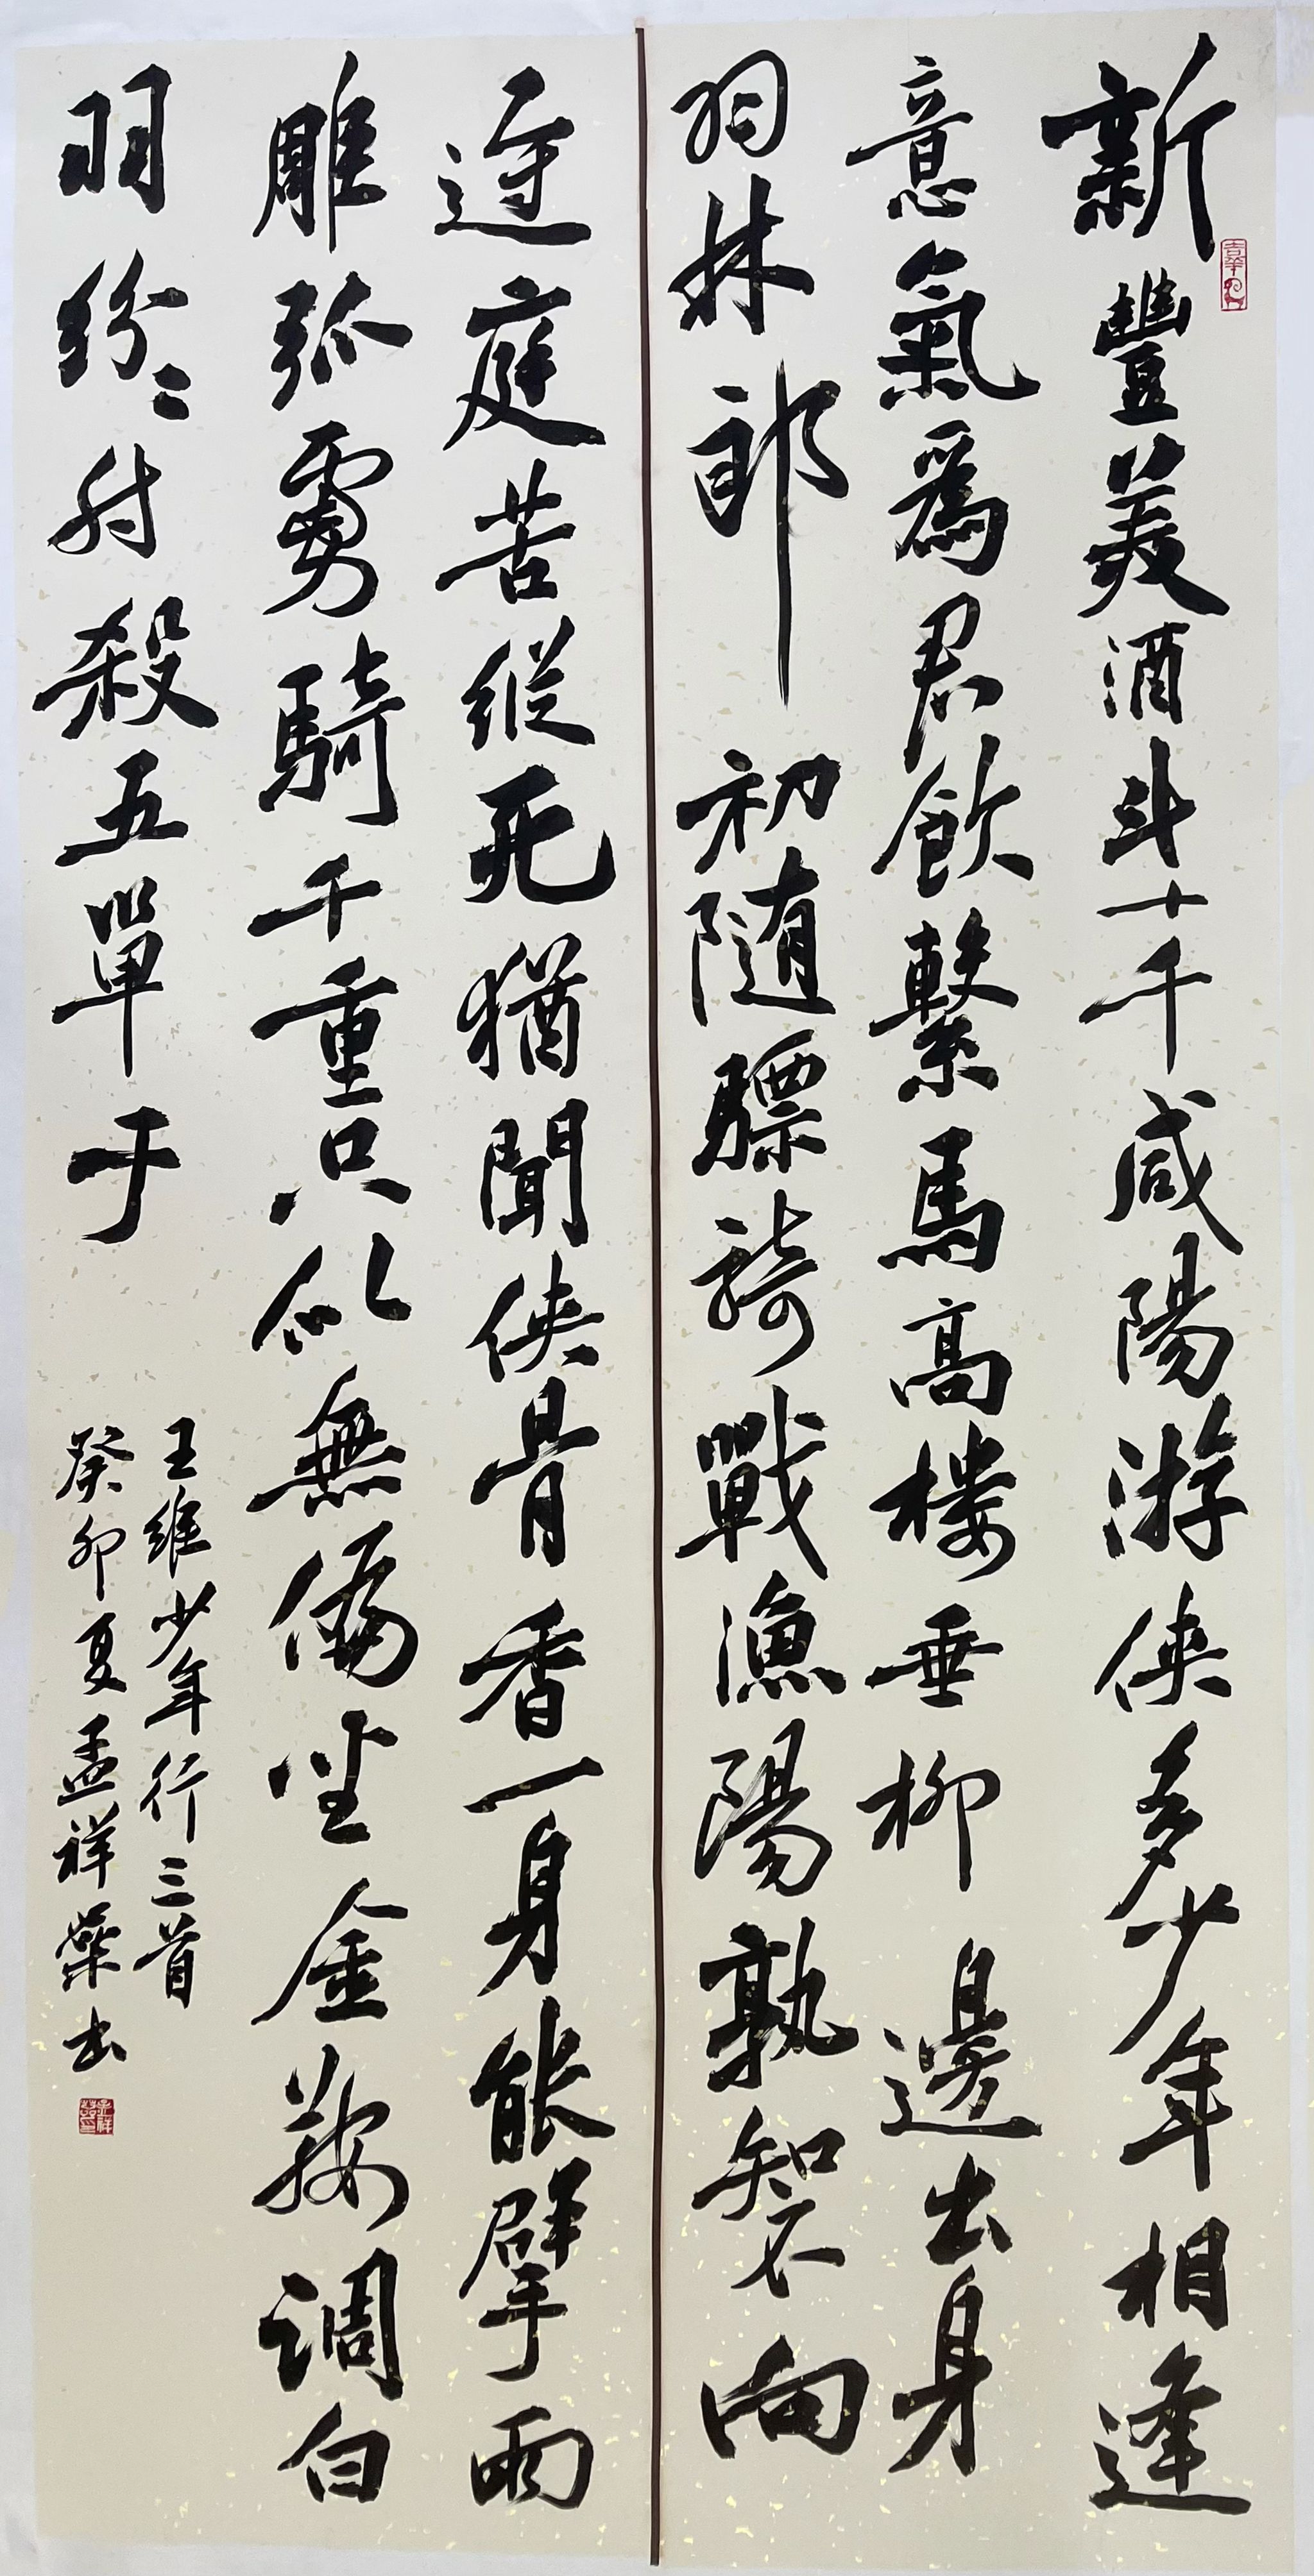 新豐美酒斗十千咸陽游侠多少年相逢
意氣為君飲繫馬高楼垂柳邊出身
羽林郎初随驃騎戰漁陽孰知不向
邊庭苦縱死猶聞侠骨香一身能擘两
雕弧虜騎千重只似無偏坐金鞍調白
羽紛〻射殺五單于
王維少年行三首
癸卯夏孟祥葉书